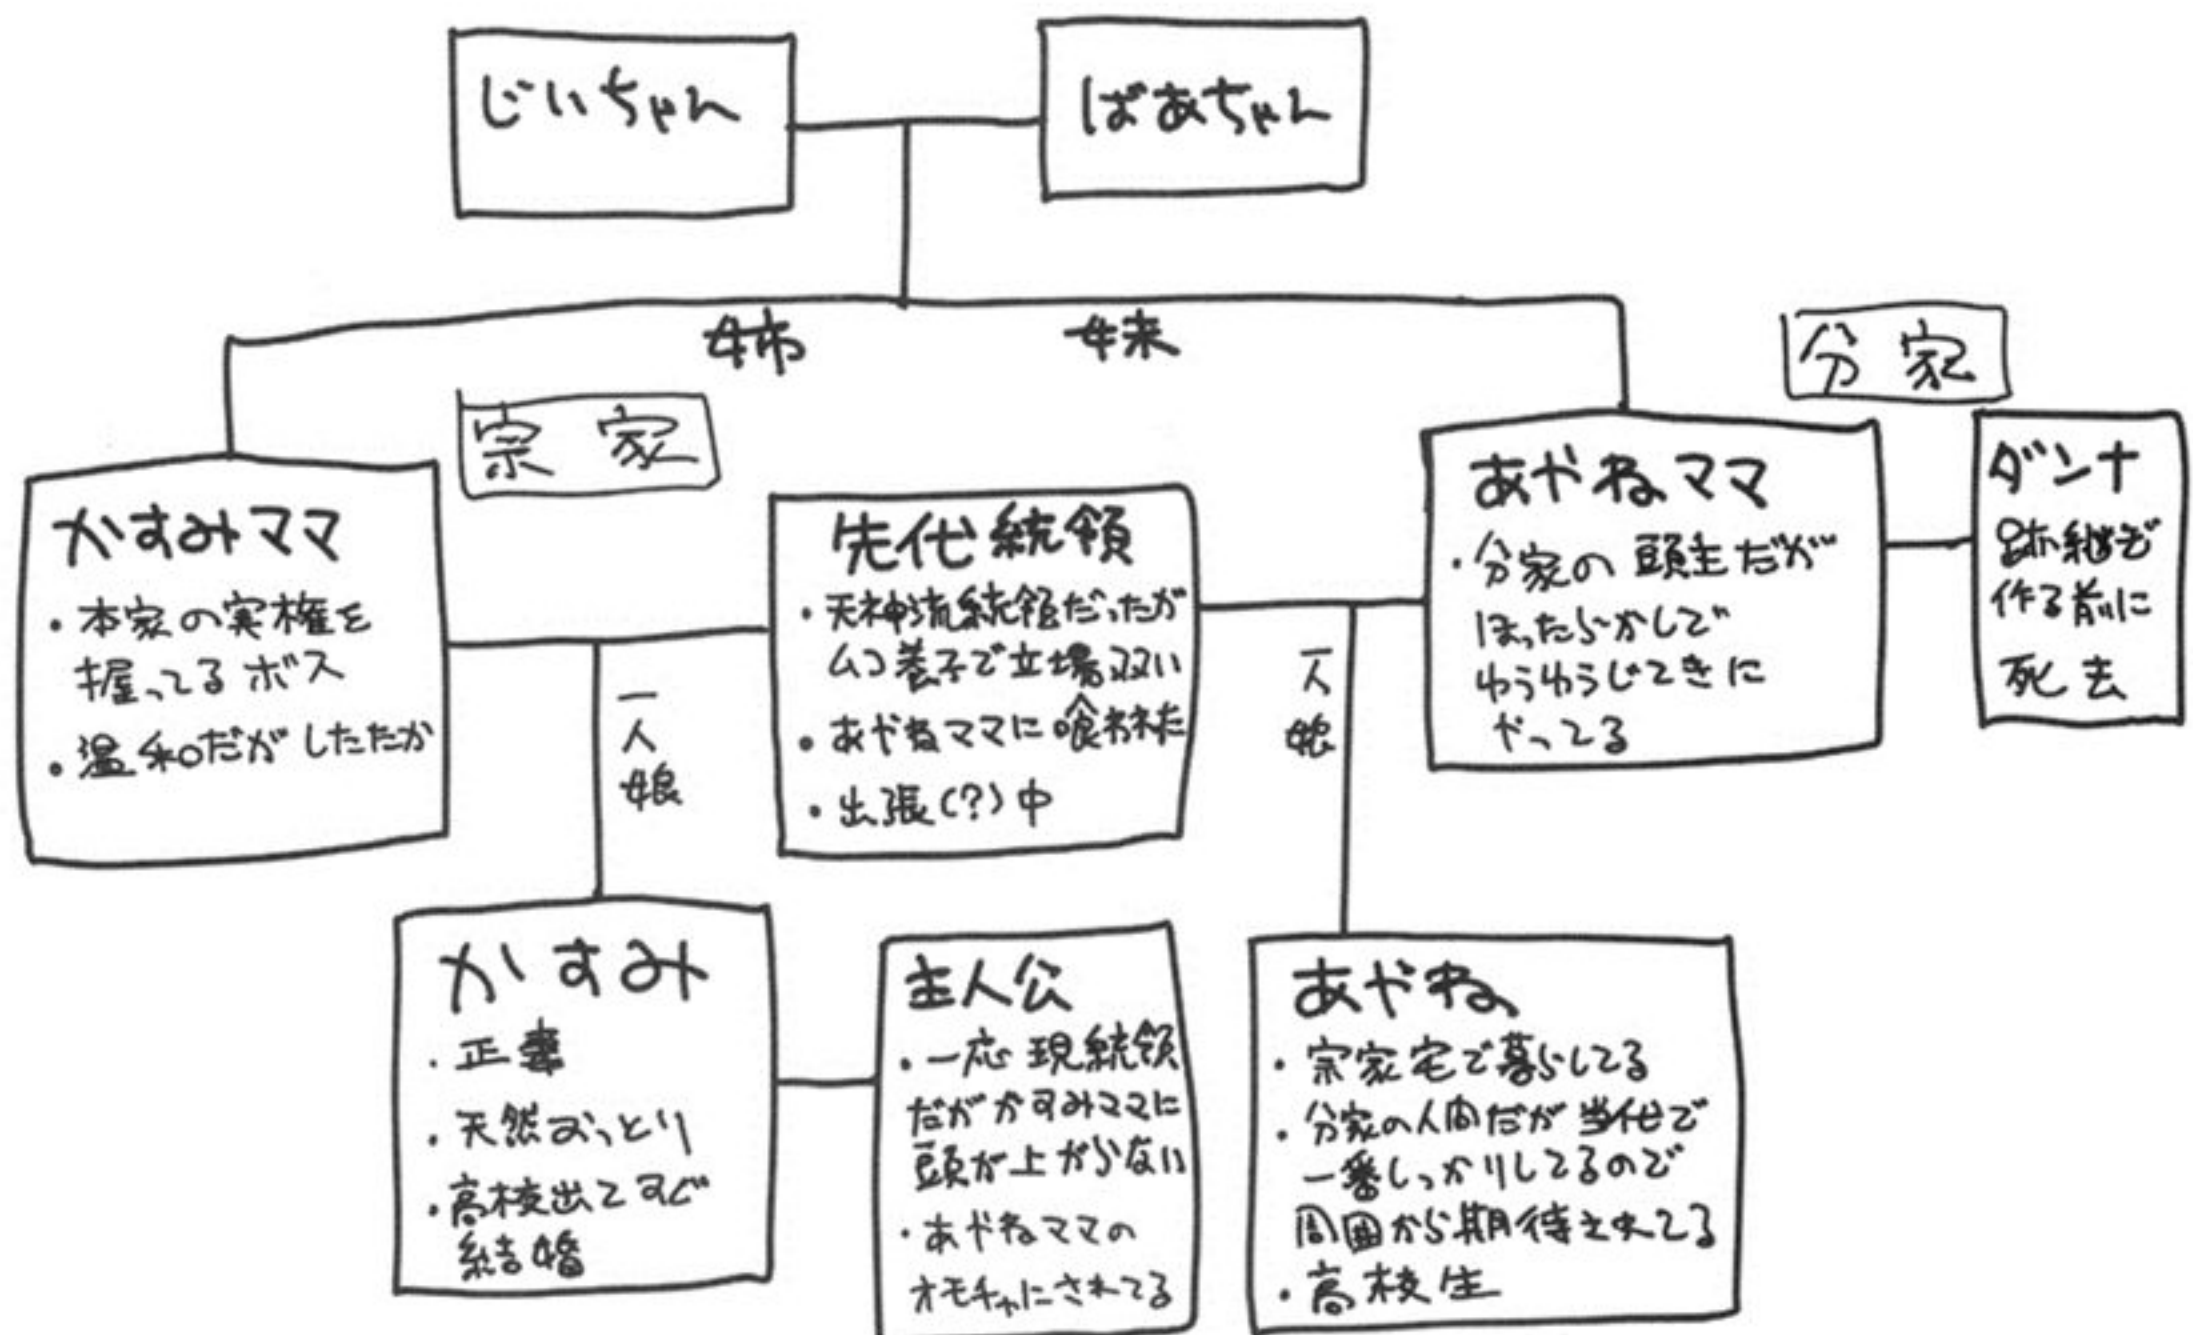 じいちゃん
ばあちゃん
姉
妹
分家
宗家
かすみママ
・本家の実権を
握ってるボス
・温和だがしたたか
先代統領
・天神流統領だったが
ムコ養子で立場弱い
・あやねママに喰われた
・出張(?)中
あやねママ
・分家の頭主だが
ほったらかしで
ゆうゆうじてきに
やってる
ダンナ
跡継ぎ
作る前に
死去
一人娘
一人娘
かすみ
・正妻
・天然おっとり
・高校出てすぐ
結婚
主人公
・一応現統領
だがかすみママに
頭が上がらない
・あやねママの
オモチャにされてる
あやね
・宗家宅で暮らしてる
・分家の人間だが当代で
一番しっかりしてるので
周囲から期待されてる
・高校生